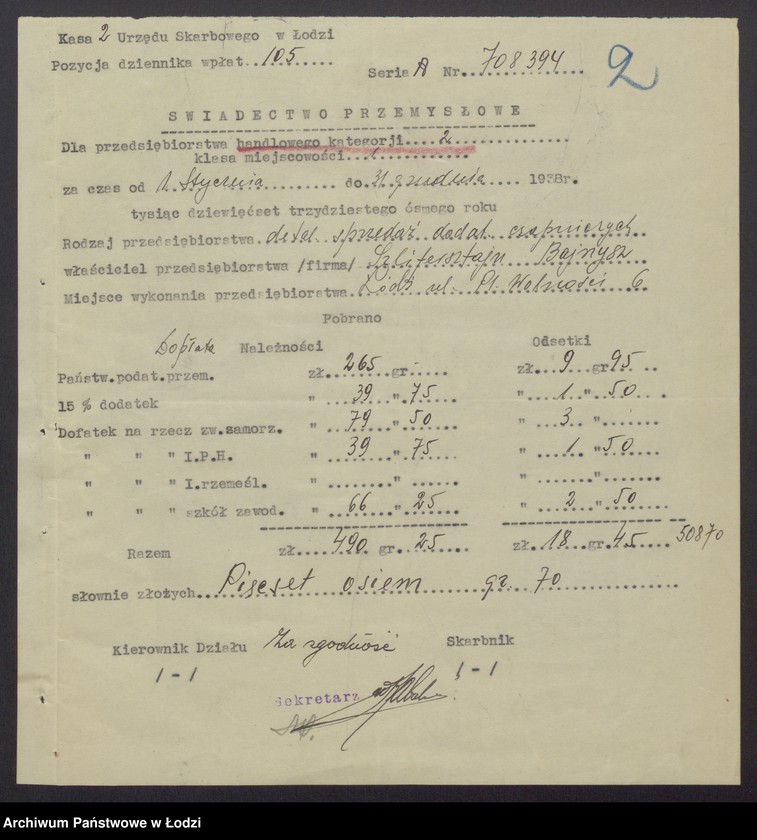 Kasa 2 Urzędu Skarbowego w Łodzi
Pozycja dziennika wpłat..105......
Seria A Nr..708394....
2
SWIADECTWO PRZEMYSŁOWE
Dla przedsiębiorstwa handlowego kategorji....2...............
klasa miejscowości...1............
za czas od 1. Stycznia .......... do.31 grudnia .... 1938r.
tysiąc dziewięćset trzydziestego ósmego roku
Rodzaj przedsiębiorstwa. detal. sprzedaż dodat. czapniczych
właściciel przedsiębiorstwa /firma/ Szlifersztajn Bajnysz
Miejsce wykonania przedsiębiorstwa.Łódź ul. Pl. Wolności 6
Pobrano
Dopłata Należności Odsetki
Państw.podat.przem. zł...265..gr.-.... zł...9..gr95...
15 % dodatek " ...39..."..75.... "...1.."..50...
Dofatek na rzecz zw.samorz. " ...79..."..50.... "...3.."......
" " " I.P.H. " ...39..."..75.... "...1.."50....
" " " I.rzemeśl. " ......."...... " ......"......
" " " szkół zawod. " ...66..."..25.... " ...2.."..50....
Razem zł...490..gr..25.... zł..18..gr.45.... 50870
słownie złożych...Pięćset osiem gr. 70
Kierownik Działu Za zgodność Skarbnik
/-/ /-/
Sekretarz
Archiwum Państwowe w Łodzi